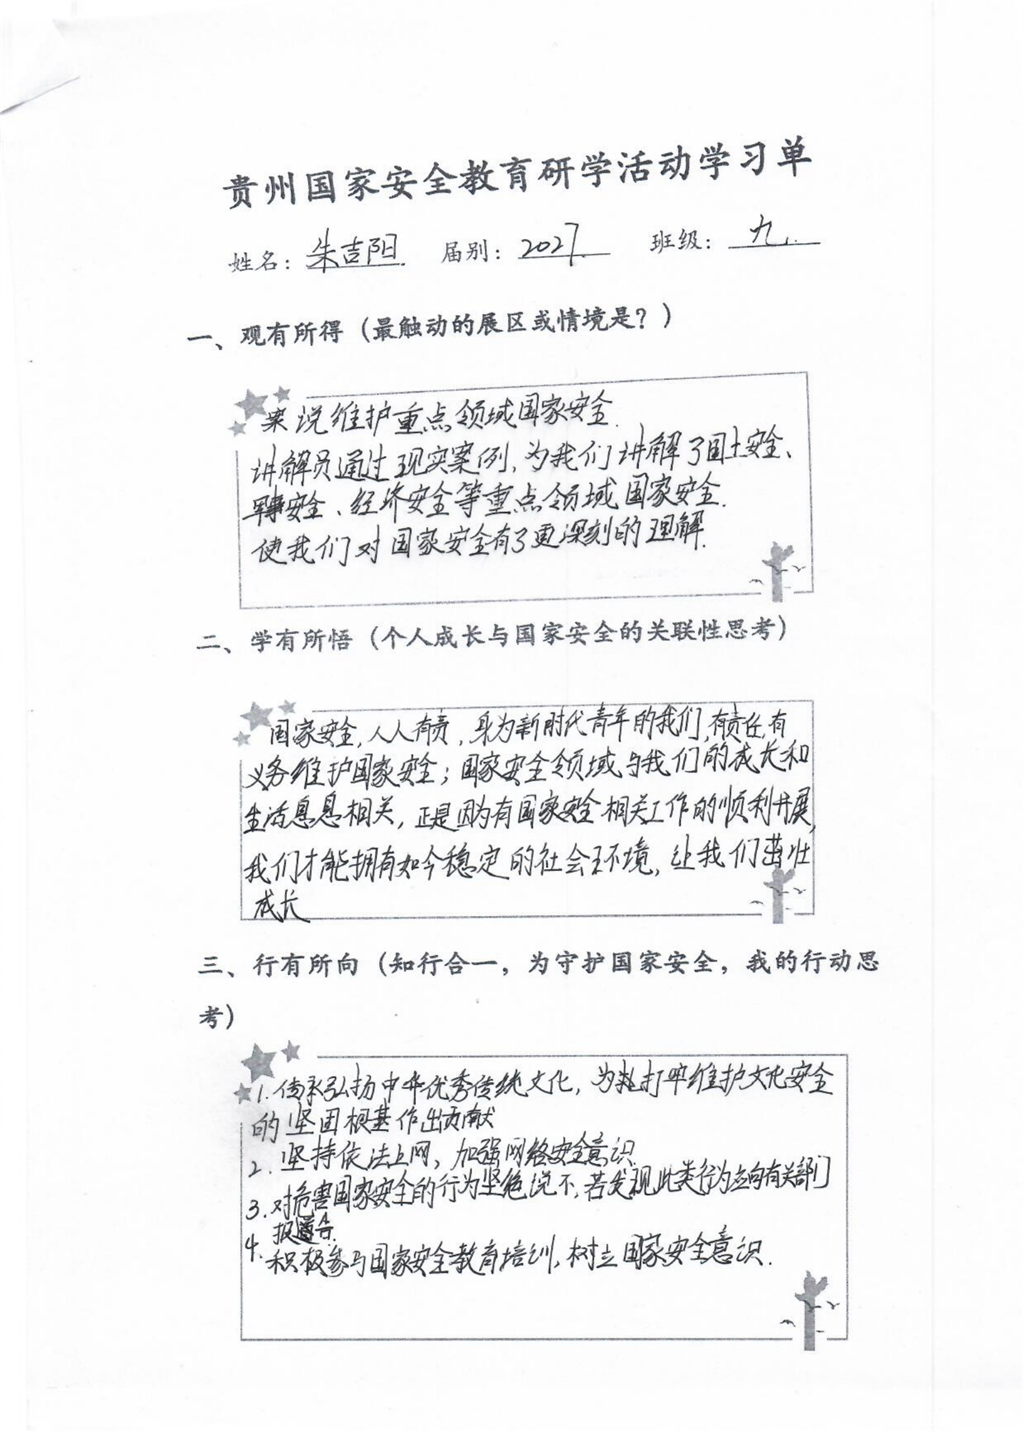 贵州国家安全教育研学活动学习单
姓名：朱吉阳 届别：2027. 班级：九.
一、观有所得（最触动的展区或情境是？）
来说维护重点领域国家安全.
讲解员通过现实案例,为我们讲解了国土安全、
军事安全、经济安全等重点领域国家安全.
使我们对国家安全有了更深刻的理解.
二、学有所悟（个人成长与国家安全的关联性思考）
国家安全,人人有责,身为新时代青年的我们,有责任,有
义务维护国家安全；国家安全领域与我们的成长和
生活息息相关,正是因为有国家安全相关工作的顺利开展,
我们才能拥有如今稳定的社会环境,让我们茁壮
成长
三、行有所向（知行合一，为守护国家安全，我的行动思
考）
1.传承弘扬中华优秀传统文化,为打牢维护文化安全
的坚固根基作出贡献
2.坚持依法上网,加强网络安全意识
3.对危害国家安全的行为坚绝说不,若发现此类行为立向有关部门
报告.
4.积极参与国家安全教育培训,树立国家安全意识.